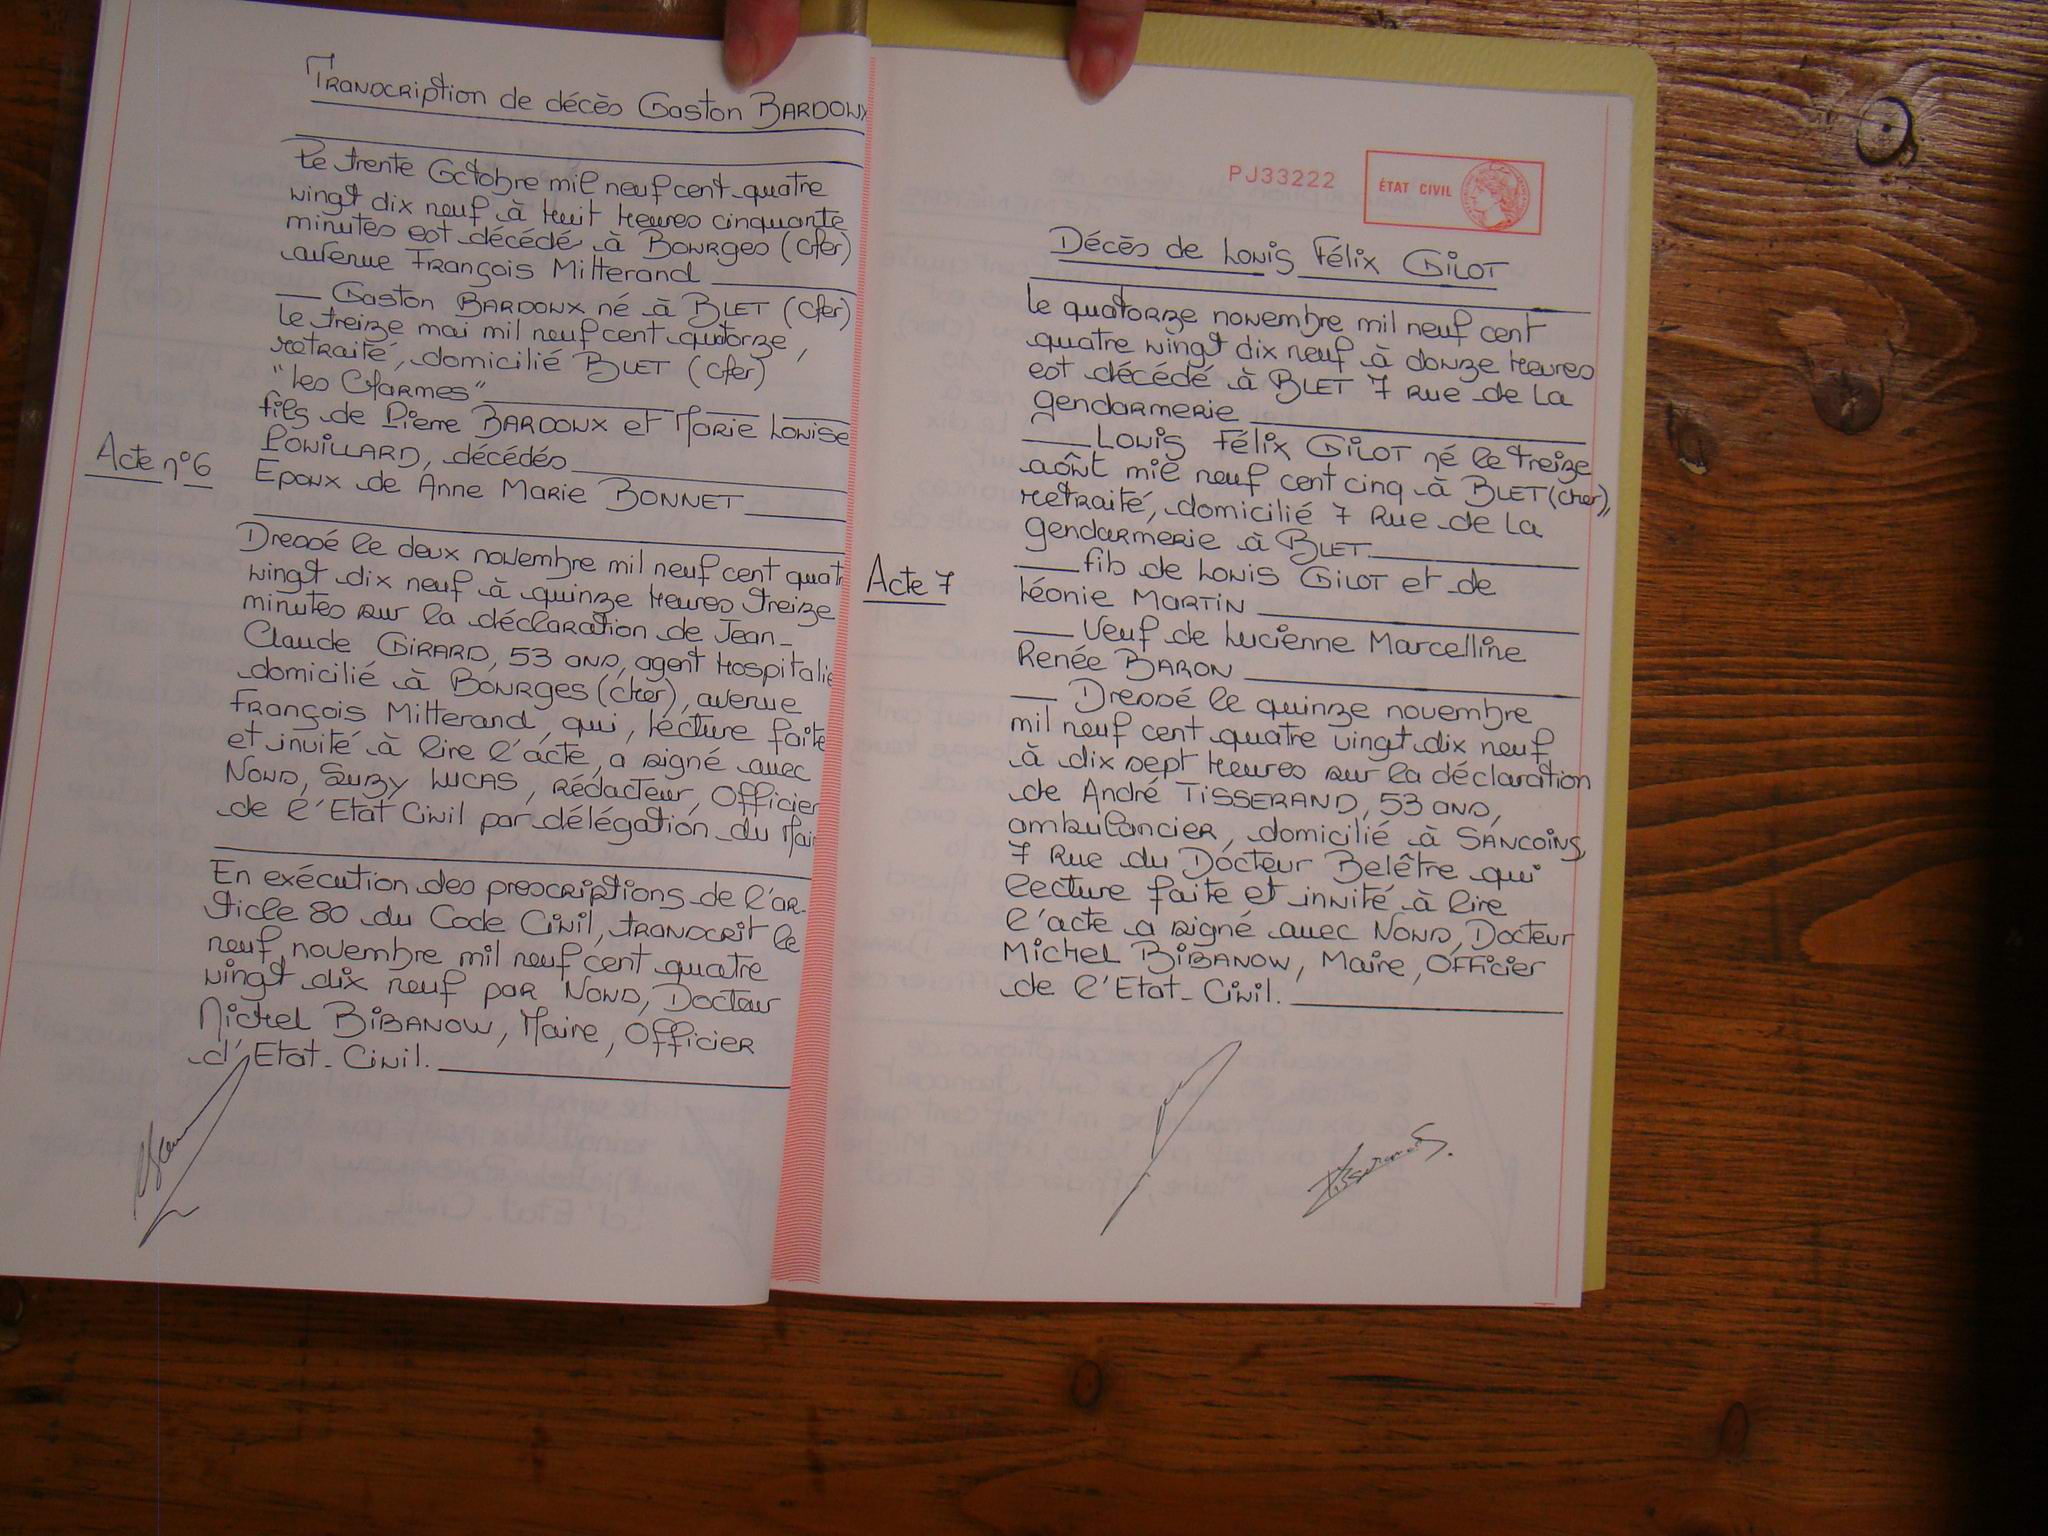 Transcription de décès Gaston BARDOUX
Le trente Octobre mil neuf cent quatre
vingt dix neuf à Huit Heures cinquante
minutes est décédé à BOURGES (Cher)
avenue François Mitterand
Gaston BARDOUX né à BLET (Cher)
le treize mai mil neuf cent quatorze,
retraité, domicilié BLET (Cher)
"Les Charmes"
fils de Pierre BARDOUX et Marie Louise
POUILLARD, décédés
Acte n°6
Epoux de Anne Marie BONNET
Dressé le deux novembre mil neuf cent quatr
vingt dix neuf à quinze Heures treize
minutes sur la déclaration de Jean-
Claude GIRARD, 53 ans, agent Hospitalie
domicilié à BOURGES (Cher), avenue
François Mitterand, qui, lecture faite
et invité à lire l'acte, a signé avec
Nous, Suzy LUCAS, Rédacteur, Officier
de l'Etat Civil par délégation du Mair
En exécution des prescriptions de l'ar-
ticle 80 du Code Civil, transcrit le
neuf novembre mil neuf cent quatre
vingt dix neuf par Nous, Docteur
Michel BIBANOW, Maire, Officier
d'Etat-Civil.
PJ33222
ÉTAT CIVIL
Décès de Louis Félix GILOT
le quatorze novembre mil neuf cent
quatre vingt dix neuf à douze Heures
est décédé à BLET 7 rue de La
gendarmerie
Louis Félix GILOT né le treize
août mil neuf cent cinq à BLET (Cher),
retraité, domicilié 7 Rue de La
gendarmerie à BLET.
Acte 7
fils de Louis GILOT et de
Léonie MARTIN
Veuf de Lucienne Marcelline
Renée BARON
Dressé le quinze novembre
mil neuf cent quatre vingt dix neuf
à dix sept Heures sur la déclaration
de André TISSERAND, 53 ans,
ambulancier, domicilié à SANCOINS,
7 Rue du Docteur Belêtre qui
lecture faite et invité à lire
l'acte a signé avec Nous, Docteur
Michel BIBANOW, Maire, Officier
de l'Etat-Civil.